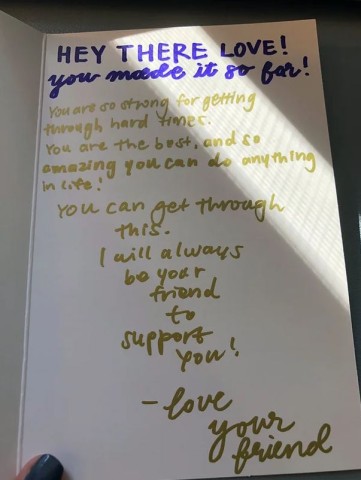 HEY THERE LOVE!
you made it so far!
You are so strong for getting
through hard times.
You are the best, and so
amazing you can do anything
in life!
You can get through
this.
I will always
be your
friend
to
support
you!
- love
your
friend